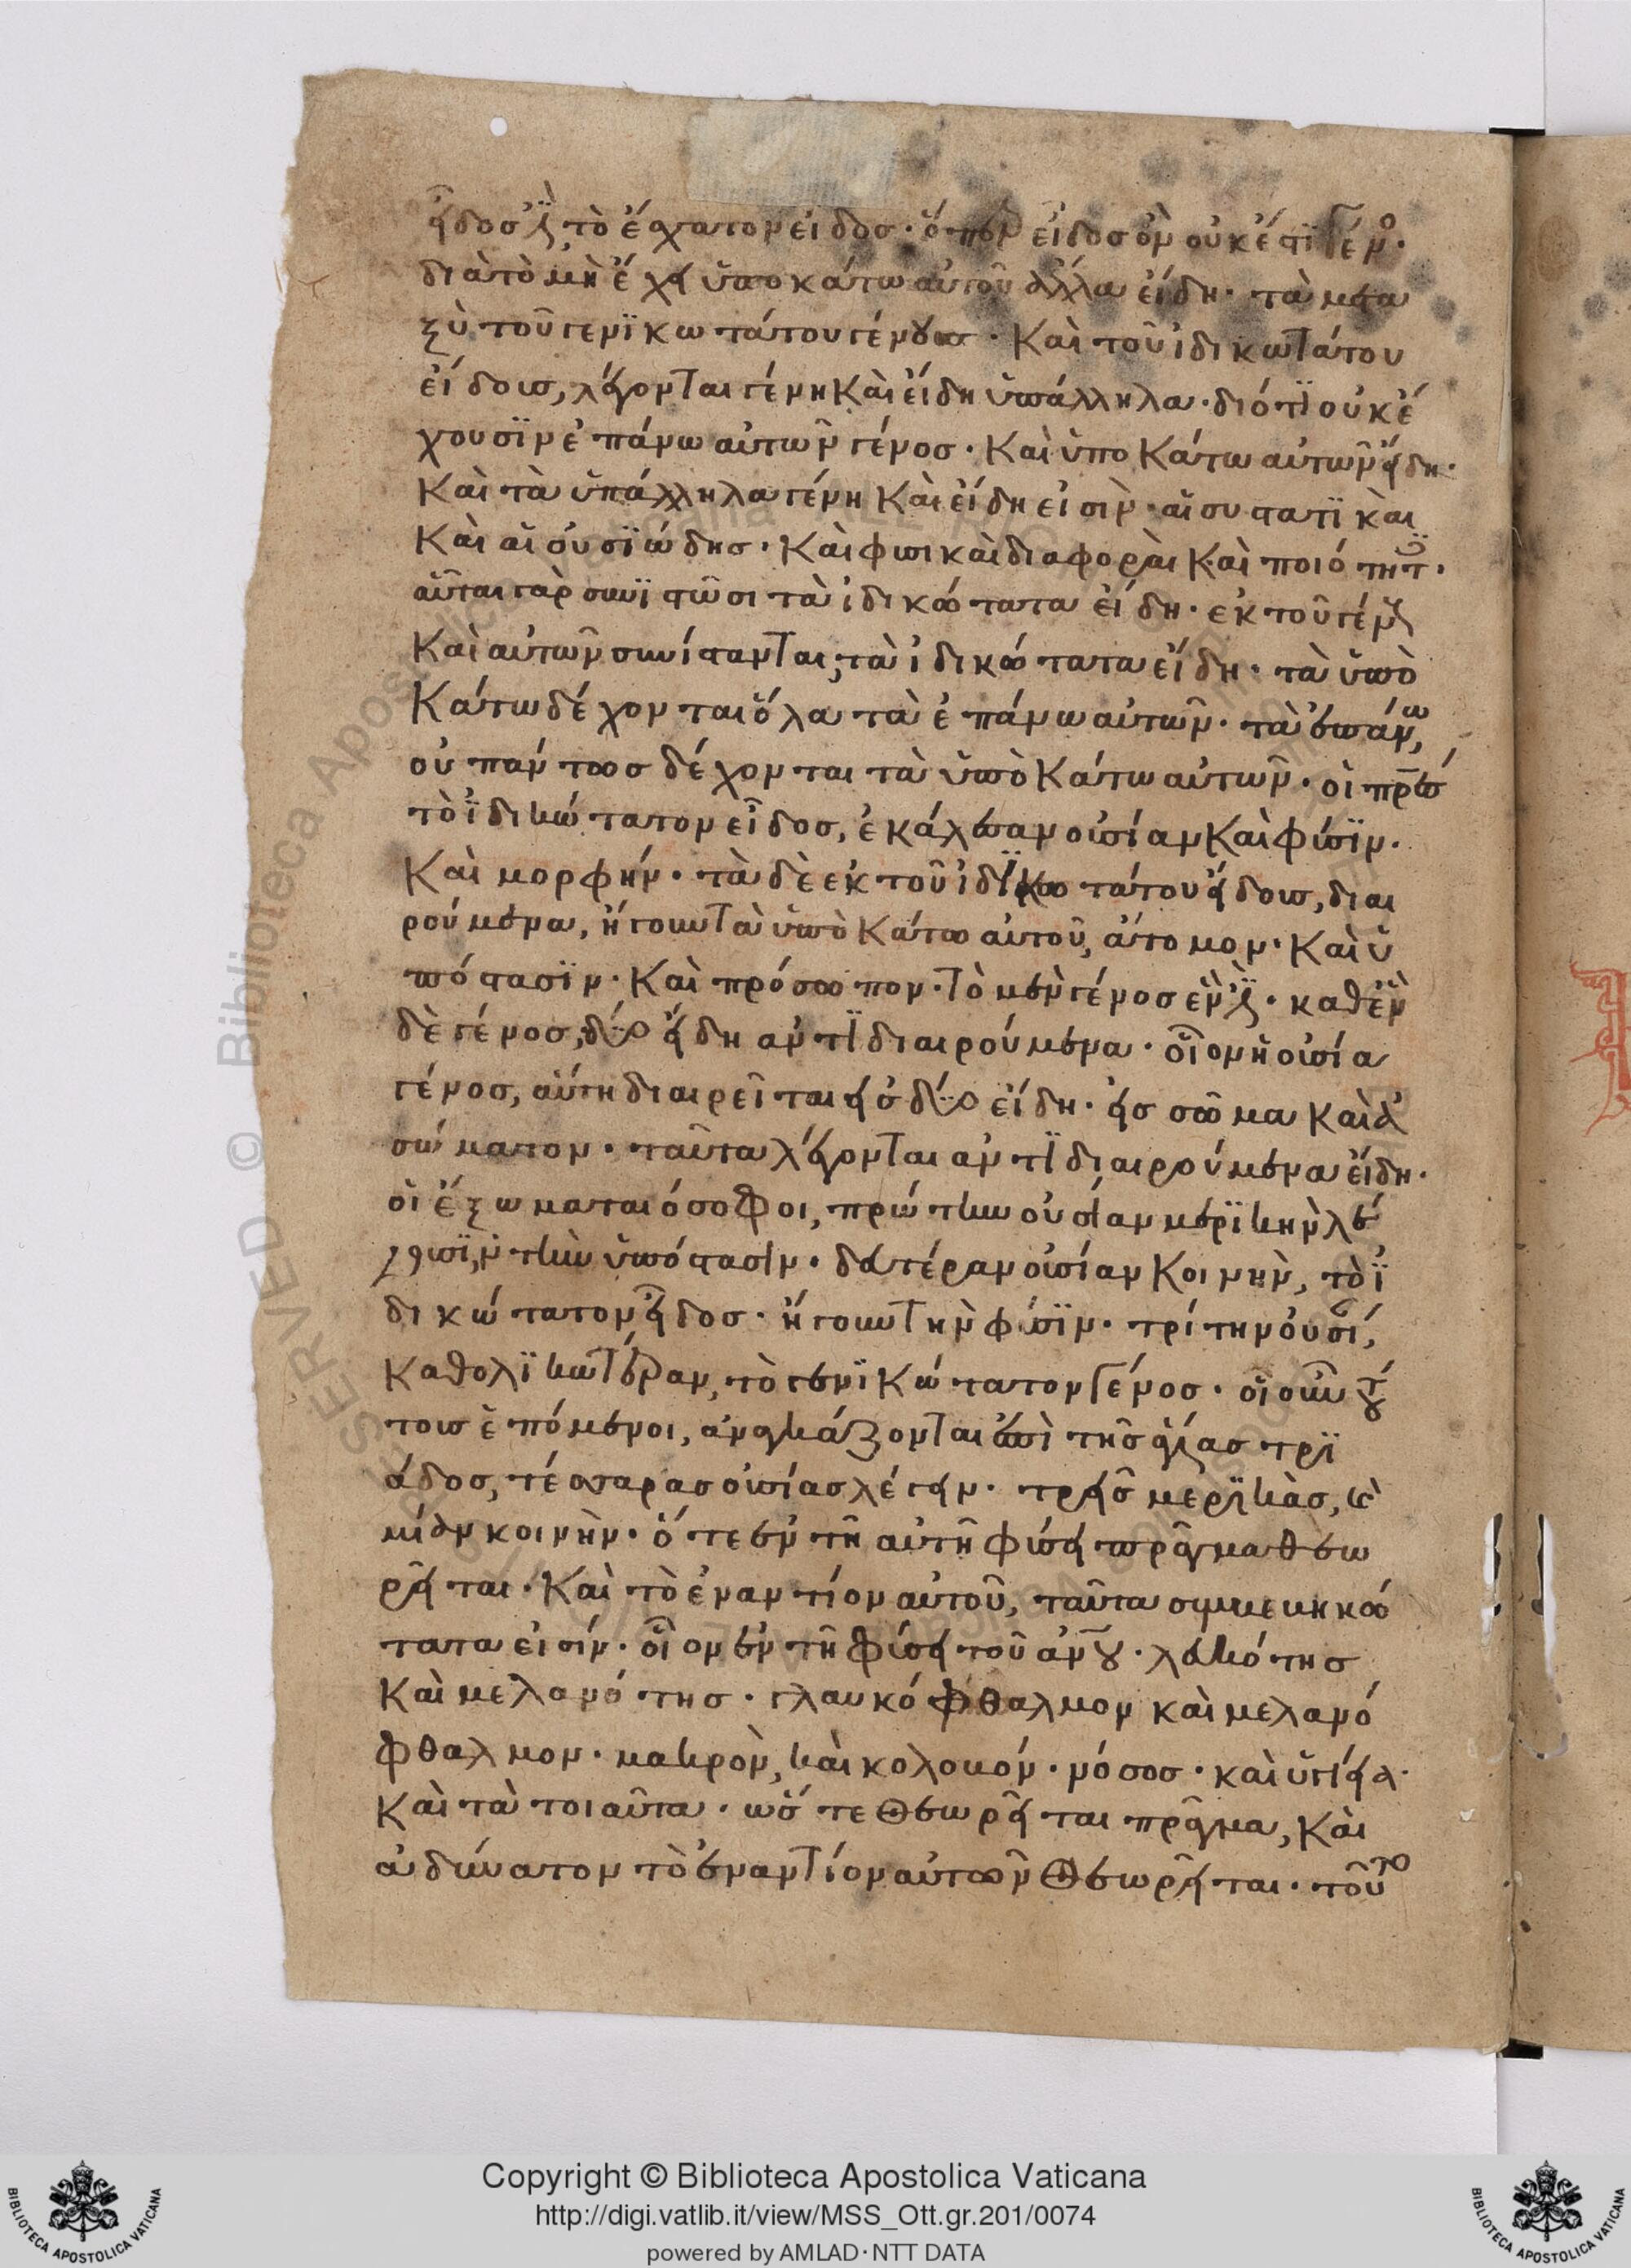 εἶδος ἐστὶ τὸ ἔσχατον εἶδος· ὅπερ εἶδος ὂν οὐκ ἔστι γένο
διὰ τὸ μὴ ἔχει ὑποκάτω αὐτοῦ ἄλλα εἴδη· τὰ μετα
ξὺ τοῦ γενικωτάτου γένους· Καὶ τοῦ ἰδικωτάτου
εἴδους, λέγονται γένη Καὶ εἴδη ὑπάλληλα· διότι οὐκ ἔ
χουσιν ἐπάνω αὐτῶν γένος· Καὶ ὑποκάτω αὐτῶν εἴδη·
Καὶ τὰ ὑπάλληλα γένη Καὶ εἴδη εἰσὶν· αἱ συστατικαὶ
Καὶ αἱ οὐσιώδης· Καὶ φυσικαὶ διαφοραὶ Καὶ ποιότητ·
αὗται γὰρ συνιστῶσι τὰ ἰδικώτατα εἴδη· ἐκ τοῦ γέν
Καὶ αὐτῶν συνίστανται, τὰ ἰδικώτατα εἴδη· τὰ ὑπὸ
Κάτω δέχονται ὅλα τὰ ἐπάνω αὐτῶν· τὰ ἐπάνω,
οὐ πάντως δέχονται τὰ ὑπὸ Κάτω αὐτῶν· οἱ πρε
τὸ ἰδικώτατον εἶδος, ἐκάλεσαν οὐσίαν Καὶ φύσιν·
Καὶ μορφήν· τὰ δὲ ἐκ τοῦ ἰδικωτάτου εἴδους, διαι
ρούμενα, ἤγουν τὰ ὑπὸ Κάτω αὐτοῦ, ἄτομον· Καὶ ὑ
πόστασιν· Καὶ πρόσωπον· τὸ μὲν γένος ἕν ἐστὶ· καθ ἓν
δὲ γένος, δύο εἴδη ἀντιδιαιρούμενα· οἷον ἡ οὐσία
γένος, αὕτη διαιρεῖται εἰς δύο εἴδη· εἰς σῶμα Καὶ ἀ
σώματον· ταῦτα λέγονται ἀντιδιαιρούμενα εἴδη·
οἱ ἔξω ματαιόσοφοι, πρώτην οὐσίαν μερικὴν λέ
γουσιν, τὴν ὑπόστασιν· δευτέραν οὐσίαν Κοινὴν, τὸ ἰ
δικώτατον εἶδος· ἤγουν τὴν φύσιν· τρίτην οὐσί,
Καθολικωτέραν, τὸ γενικώτατον γένος· οἱ οὖν τού
τοις ἑπόμενοι, ἀναγκάζονται ἐπὶ τῆς ἁγίας τρι
άδος, τέσσαρας οὐσίας λέγειν· τρεῖς μερικὰς, κὶ
μίαν κοινὴν· ὅτε ἐν τῇ αὐτῇ φύσει πρᾶγμα θεω
ρεῖται· Καὶ τὸ ἐναντίον αὐτοῦ, ταῦτα συμβεβηκό
τατα εἰσίν· οἷον ἐν τῇ φύσει τοῦ ἀνου· λευκότης
Καὶ μελανότης· γλαυκόφθαλμον καὶ μελανό
φθαλμον· μακρὸν, καὶ κολοβόν· νόσος· καὶ ὑγίεια·
Καὶ τὰ τοιαῦτα· ὡς τε Θεωρεῖται πρᾶγμα, Καὶ
ἀδύνατον τὸ ἐναντίον αὐτῶν Θεωρεῖται· τοῦτο
Copyright © Biblioteca Apostolica Vaticana
http://digi.vatlib.it/view/MSS_Ott.gr.201/0074
powered by AMLAD·NTT DATA
BIBLIOTECA APOSTOLICA VATICANA
BIBLIOTECA APOSTOLICA VATICANA